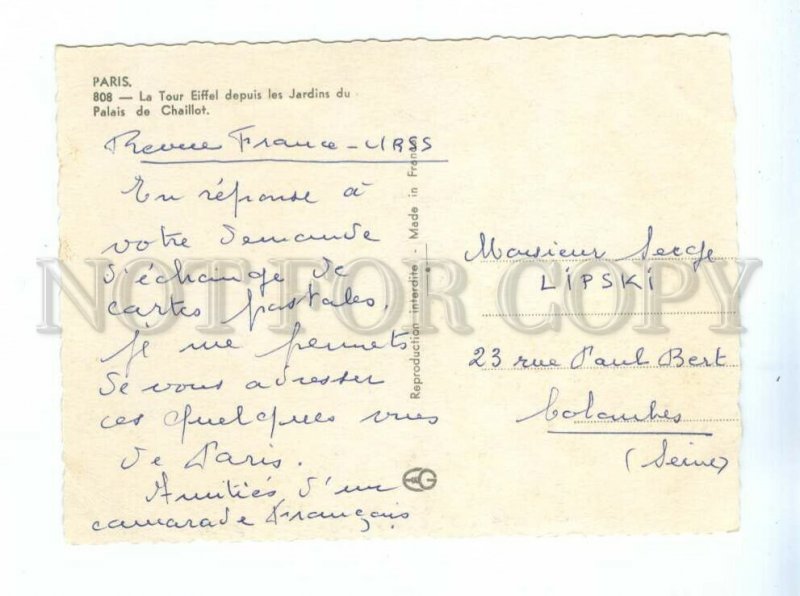 PARIS.
808 — La Tour Eiffel depuis les Jardins du
Palais de Chaillot.
Revue France-URSS
En réponse à
votre demande
d'échange de
cartes postales,
je me permets
de vous adresser
ces quelques vues
de Paris.
Amitiés d'un
camarade Français
Reproduction interdite - Made in France
Monsieur Serge
LIPSKI
23 rue Paul Bert
Colombes
(Seine)
NOT FOR COPY